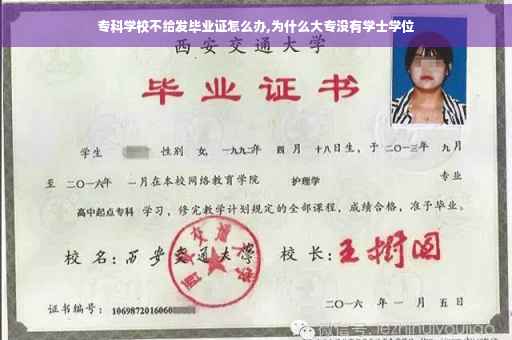 专科学校不给发毕业证怎么办,为什么大专没有学士学位
西安交通大学
毕业证书
学生 性别 女, 一九九二年 四月 十八日生, 于二〇一三年 九月
至 二〇一六年 一月在本校网络教育学院 护理学 专业
高中起点专科 学习, 修完教学计划规定的全部课程, 成绩合格, 准予毕业。
校名: 西安交通大学
校长: 王树国
西安交通大学
证书编号: 1069872016060
二〇一六年 一月 五日
微信号: jezhinuiyoujiao